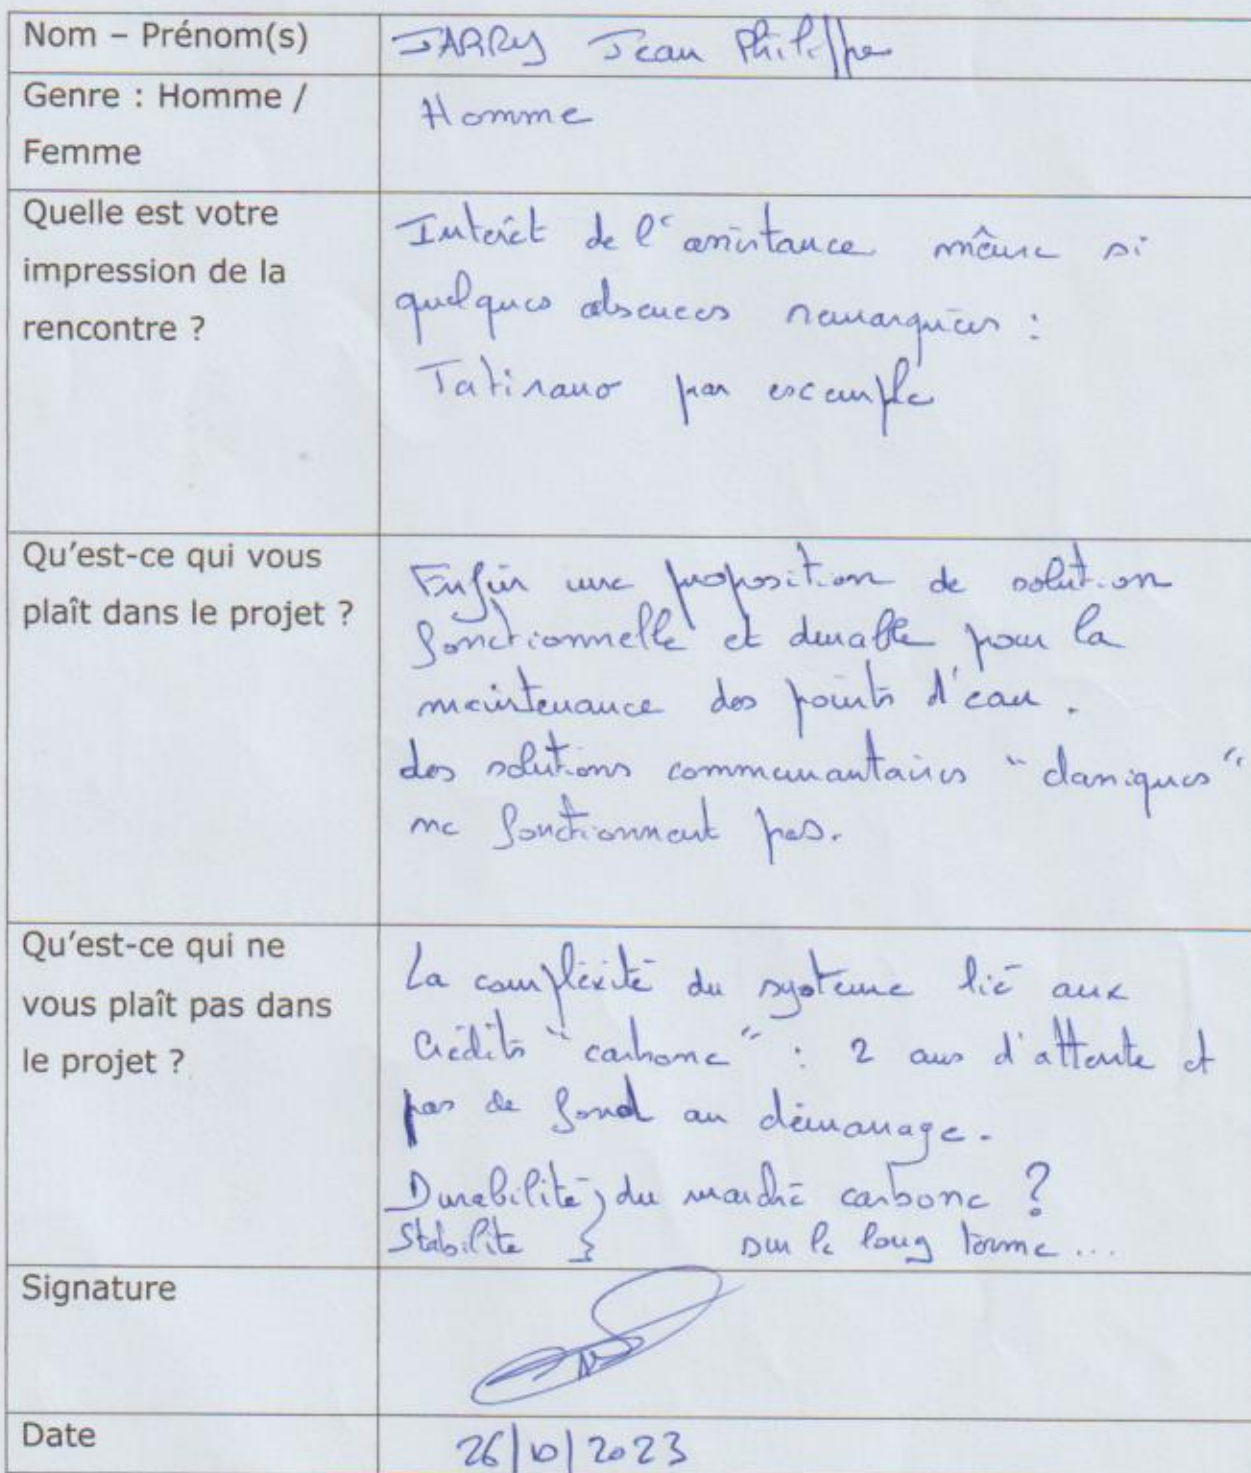 Nom – Prénom(s)
JARRY Jean Philippe
Genre : Homme /
Femme
Homme
Quelle est votre
impression de la
rencontre ?
Interêt de l'assistance même si
quelques absences remarquées :
Tatirano par exemple
Qu'est-ce qui vous
plaît dans le projet ?
Enfin une proposition de solution
fonctionnelle et durable pour la
maintenance des points d'eau.
des solutions communautaires "classiques"
ne fonctionnent pas.
Qu'est-ce qui ne
vous plaît pas dans
le projet ?
La complexité du système lié aux
Crédits "carbone" : 2 ans d'attente et
pas de fond au démarrage.
Durabilité } du marché carbone ?
Stabilité } sur le long terme...
Signature
Date
26/10/2023